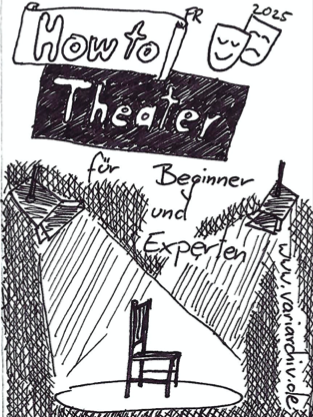 How to
FR
2025
Theater
für
Beginner
und
Experten
www.variarchiv.de